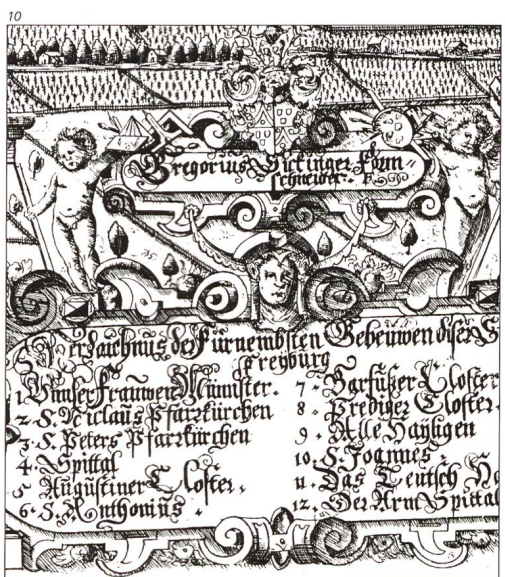 10
Gregorius Sickinger Form⸗
schneider. F.
Verzaichnus der Fürnembsten Gebeuwen diser S
Freyburg
1 Vnnser Frauwen Münnster.
2. S. Niclaus Pfarrkürchen
3. S. Peters Pfarrkürchen
4. Spittal
5 Augustiner Closter.
6. S. Anthonius.
7. Barfüßer Closter
8. Prediger Closter.
9. Alle Hayligen
10. S. Joannes.
11. Das Teutsch
12. Der Arm Spittal